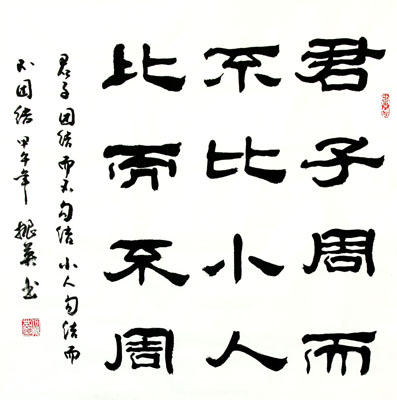 君子周而
不比小人
比而不周
君子团结而不勾结小人勾结而
不团结甲午年振英书